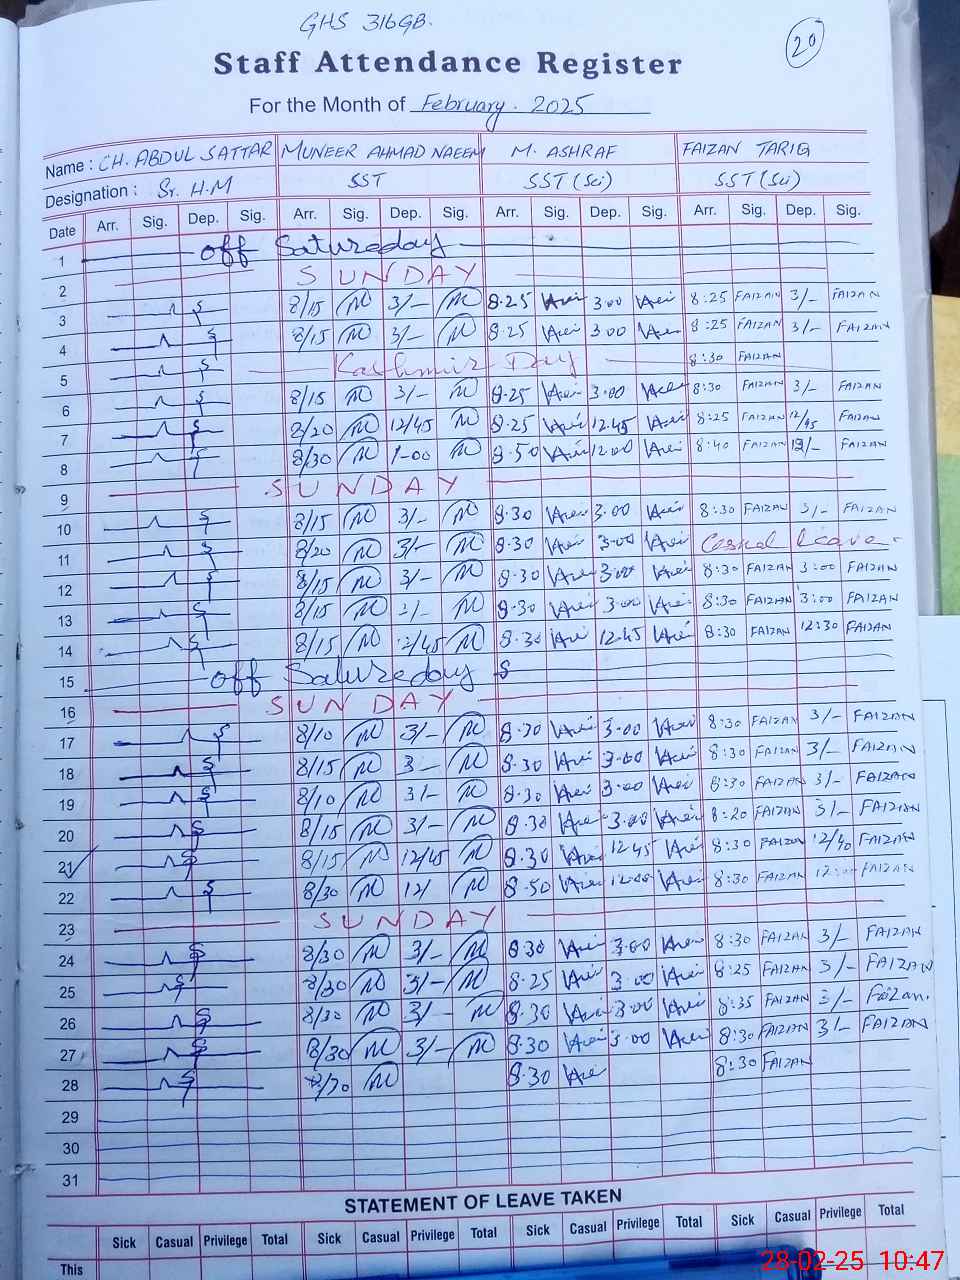 GHS 316GB.
20
Staff Attendance Register
For the Month of February. 2025
Name : CH. ABDUL SATTAR MUNEER AHMAD NAEEM M. ASHRAF FAIZAN TARIQ
Designation : Sr. H.M SST SST (Sci) SST (Sci)
Date Arr. Sig. Dep. Sig. Arr. Sig. Dep. Sig. Arr. Sig. Dep. Sig. Arr. Sig. Dep. Sig.
1 off Satureday
2 SUNDAY
3 8/15 3/- 8.25 3.00 8:25 FAIZAN 3/- FAIZAN
4 8/15 3/- 8.25 3.00 8:25 FAIZAN 3/- FAIZAN
5 Kashmir Day 8:30 FAIZAN
6 8/15 3/- 8.25 3.00 8:30 FAIZAN 3/- FAIZAN
7 8/20 12/45 8.25 12.45 8:25 FAIZAN 12/45 FAIZAN
8 8/30 1-00 8.50 12.00 8:40 FAIZAN 12/- FAIZAN
9 SUNDAY
10 8/15 3/- 8.30 3.00 8:30 FAIZAN 3/- FAIZAN
11 8/20 3/- 8.30 3.00 Casual leave
12 8/15 3/- 8.30 3.00 8:30 FAIZAN 3:00 FAIZAN
13 8/15 8.30 3.00 8:30 FAIZAN 3:00 FAIZAN
14 8/15 12/45 8.30 12.45 8:30 FAIZAN 12:30 FAIZAN
15 off Satureday
16 SUNDAY
17 8/10 3/- 8.30 3.00 8:30 FAIZAN 3/- FAIZAN
18 8/15 3- 8.30 3.00 8:30 FAIZAN 3/- FAIZAN
19 8/10 3/- 8.30 3.00 8:30 FAIZAN 3/- FAIZAN
20 8/15 3/- 8.30 3.00 8:20 FAIZAN 3/- FAIZAN
21 8/15 12/45 8.30 12.45 8:30 FAIZAN 12/40 FAIZAN
22 8/30 12/ 8.50 12.00 8:30 FAIZAN 12:00 FAIZAN
23 SUNDAY
24 8/30 3/- 8.30 3.00 8:30 FAIZAN 3/- FAIZAN
25 8/30 3/- 8.25 3.00 8:25 FAIZAN 3/- FAIZAN
26 8/30 3/- 8.30 3.00 8:35 FAIZAN 3/- Faizan.
27 8/30 3/- 8.30 3.00 8:30 FAIZAN 3/- FAIZAN
28 8/30 8.30 8:30 FAIZAN
29
30
31
STATEMENT OF LEAVE TAKEN
Sick Casual Privilege Total Sick Casual Privilege Total Sick Casual Privilege Total Sick Casual Privilege Total
This
28-02-25 10:47